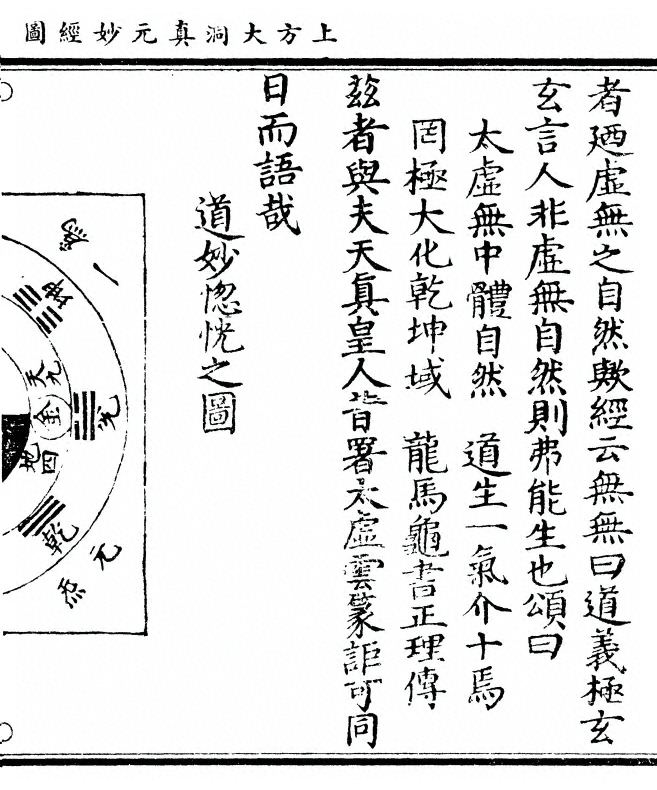 上方大洞真元妙經圖
者廼虛無之自然歟經云無無曰道義極玄
玄言人非虛無自然則弗能生也頌曰
太虛無中體自然　道生一氣介十焉
罔極大化乾坤域　龍馬龜書正理傳
茲者與夫天眞皇人昔署太虛雲篆詎可同
日而語哉
道妙惚恍之圖
一
元
炁
坤
兌
乾
天九
金
地四